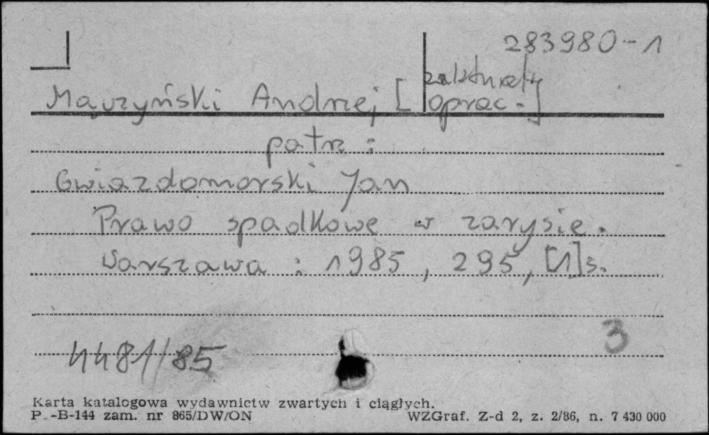 283980-1
Mączyński Andrzej [zaktual. i
oprac.]
patrz:
Gwiazdomorski Jan
Prawo spadkowe w zarysie.
Warszawa: 1985, 295, [1]s.
3
4481/85
Karta katalogowa wydawnictw zwartych i ciągłych.
P.-B-144 zam. nr 865/DW/ON WZGraf. Z-d 2, z. 2/86, n. 7 430 000